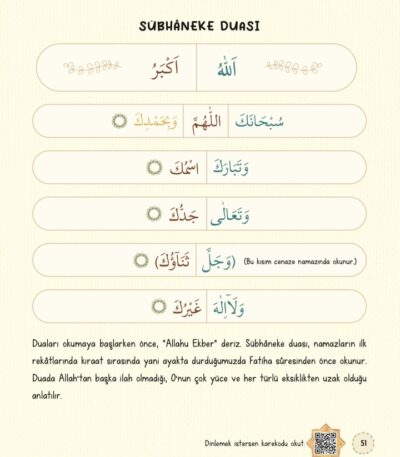 SÜBHÂNEKE DUASI
اَللّٰهُ اَكْبَرُ
سُبْحَانَكَ اللّٰهُمَّ وَبِحَمْدِكَ
وَتَبَارَكَ اسْمُكَ
وَتَعَالٰى جَدُّكَ
(وَجَلَّ ثَنَاؤُكَ) (Bu kısım cenaze namazında okunur.)
وَلَٓا اِلٰهَ غَيْرُكَ
Duaları okumaya başlarken önce, "Allahu Ekber" deriz. Sübhâneke duası, namazların ilk
rekâtlarında kıraat sırasında yani ayakta durduğumuzda Fatiha sûresinden önce okunur.
Duada Allah'tan başka ilah olmadığı, O'nun çok yüce ve her türlü eksiklikten uzak olduğu
anlatılır.
Dinlemek istersen karekodu okut.
51